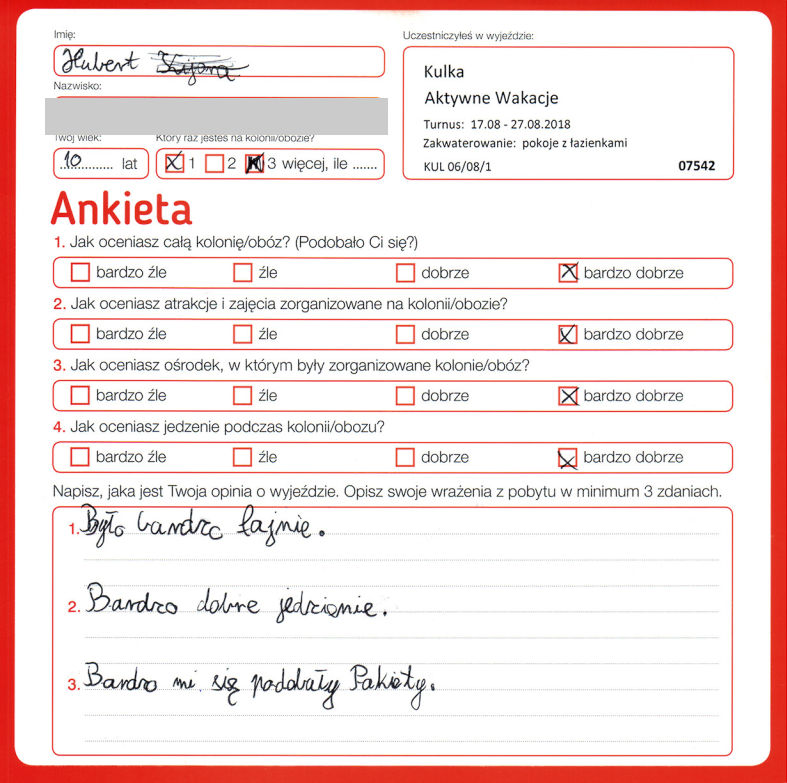 Imię:
Hubert
Nazwisko:
Twój wiek:
10 lat
Który raz jesteś na kolonii/obozie?
1 2 3 więcej, ile .......
Uczestniczyłeś w wyjeździe:
Kulka
Aktywne Wakacje
Turnus: 17.08 - 27.08.2018
Zakwaterowanie: pokoje z łazienkami
KUL 06/08/1 07542
Ankieta
1. Jak oceniasz całą kolonię/obóz? (Podobało Ci się?)
bardzo źle źle dobrze bardzo dobrze
2. Jak oceniasz atrakcje i zajęcia zorganizowane na kolonii/obozie?
bardzo źle źle dobrze bardzo dobrze
3. Jak oceniasz ośrodek, w którym były zorganizowane kolonie/obóz?
bardzo źle źle dobrze bardzo dobrze
4. Jak oceniasz jedzenie podczas kolonii/obozu?
bardzo źle źle dobrze bardzo dobrze
Napisz, jaka jest Twoja opinia o wyjeździe. Opisz swoje wrażenia z pobytu w minimum 3 zdaniach.
1. Było bardzo fajnie.
2. Bardzo dobre jedzienie.
3. Bardzo mi się podobały Pakiety.